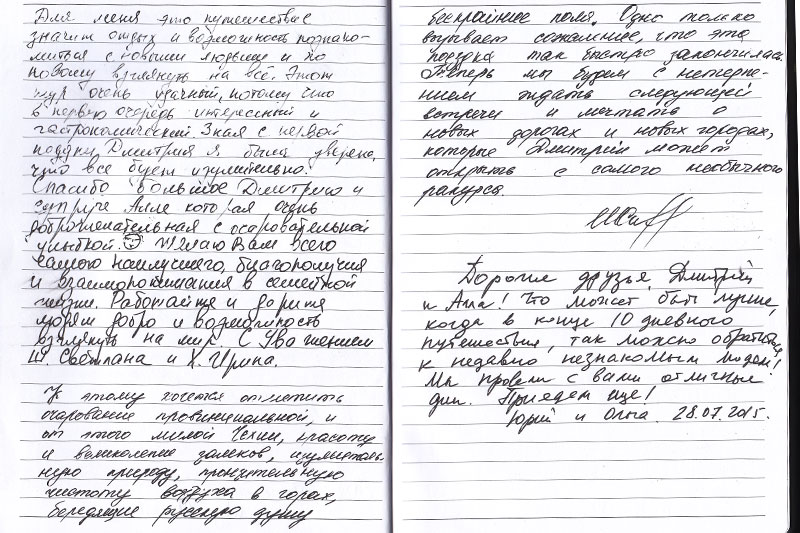 Для меня это путешествие
значит отдых и возможность познако-
миться с новыми людьми и по
новому взглянуть на всё. Этот
тур очень удачный, потому что
в первую очередь интересный и
гастрономический. Зная с первой
поездки Дмитрия я была уверена,
что всё будет изумительно.
Спасибо большое Дмитрию и
супруге Алле которая очень
доброжелательная с очаровательной
улыбкой. Желаю Вам всего
самого наилучшего, благополучия
и взаимопонимания в семейной
жизни. Работайте и дарите
людям добро и возможность
взглянуть на мир. С Уважением
Светлана и Х. Ирина.
К этому хочется отметить
очарование провинциальной, и
от этого милой Чехии, красоту
и великолепие замков, изумитель-
ную природу, пронзительную
чистоту воздуха в горах,
бередящие русскую душу
бескрайние поля. Одно только
вызывает сожаление, что эта
поездка так быстро закончилась.
Теперь мы будем с нетерпе-
нием ждать следующей
встречи и мечтать о
новых дорогах и новых городах,
которые Дмитрий может
открыть с самого необычного
ракурса.
Дорогие друзья, Дмитрий
и Алла! Что может быть лучше,
когда в конце 10 дневного
путешествия, так можно обратиться
к недавно незнакомым людям!
Мы провели с вами отличные
дни. Приедем ещё!
Юрий и Ольга. 28.07.2015.